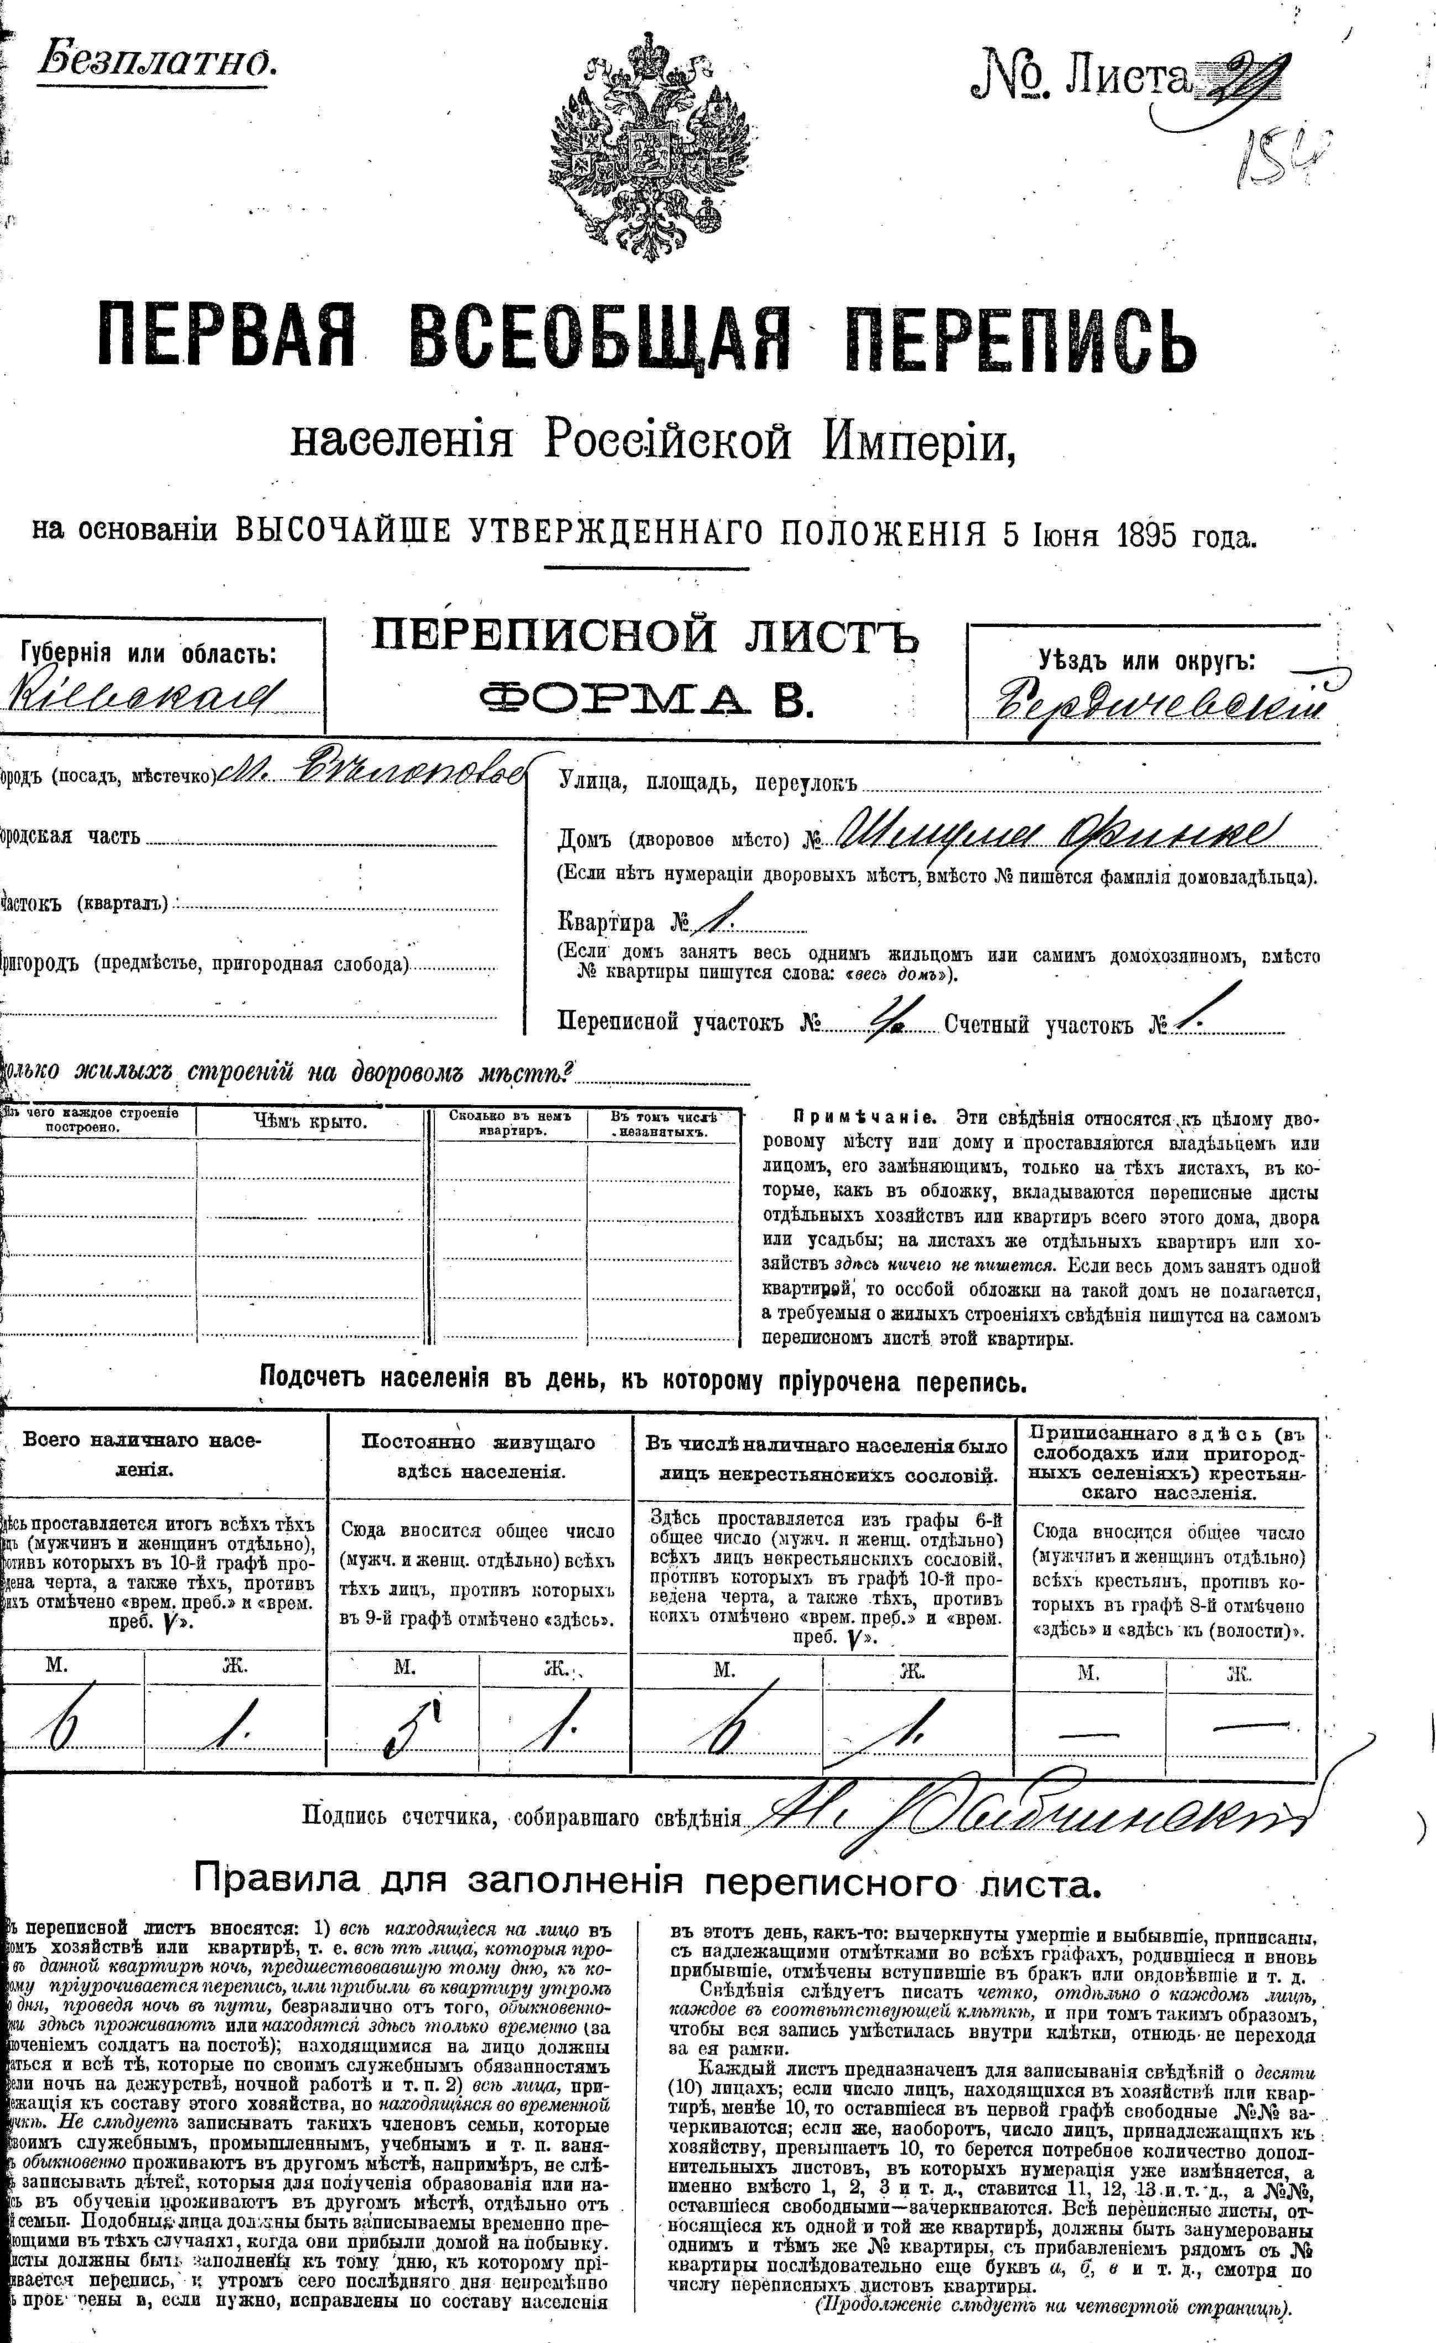 Безплатно.
№. Листа 29
154
ПЕРВАЯ ВСЕОБЩАЯ ПЕРЕПИСЬ
населенія Россійской Имперіи,
на основаніи ВЫСОЧАЙШЕ УТВЕРЖДЕННАГО ПОЛОЖЕНІЯ 5 Іюня 1895 года.
ПЕРЕПИСНОЙ ЛИСТЪ
ФОРМА В.
Губернія или область:
Кіевская
Уѣздъ или округъ:
Бердичевскій
ородъ (посадъ, мѣстечко) м. Бѣлополье
ородская часть
частокъ (кварталъ)
ригородъ (предмѣстье, пригородная слобода)
Улица, площадь, переулокъ
Домъ (дворовое мѣсто) № Шмуля Финке
(Если нѣтъ нумераціи дворовыхъ мѣстъ, вмѣсто № пишется фамилія домовладѣльца).
Квартира № 1.
(Если домъ занятъ весь однимъ жильцомъ или самимъ домохозяиномъ, вмѣсто
№ квартиры пишутся слова: «весь домъ»).
Переписной участокъ № 4. Счетный участокъ № 1.
олько жилыхъ строеній на дворовомъ мѣстѣ?
Изъ чего каждое строеніе
построено.
Чѣмъ крыто.
Сколько въ немъ
квартиръ.
Въ томъ числѣ
незанятыхъ.
Примѣчаніе. Эти свѣдѣнія относятся къ цѣлому дво-
ровому мѣсту или дому и проставляются владѣльцемъ или
лицомъ, его замѣняющимъ, только на тѣхъ листахъ, въ ко-
торые, какъ въ обложку, вкладываются переписные листы
отдѣльныхъ хозяйствъ или квартиръ всего этого дома, двора
или усадьбы; на листахъ же отдѣльныхъ квартиръ или хо-
зяйствъ здѣсь ничего не пишется. Если весь домъ занятъ одной
квартирой, то особой обложки на такой домъ не полагается,
а требуемыя о жилыхъ строеніяхъ свѣдѣнія пишутся на самомъ
переписномъ листѣ этой квартиры.
Подсчетъ населенія въ день, къ которому пріурочена перепись.
Всего наличнаго насе-
ленія.
дѣсь проставляется итогъ всѣхъ тѣхъ
цъ (мужчинъ и женщинъ отдѣльно),
отивъ которыхъ въ 10-й графѣ про-
дена черта, а также тѣхъ, противъ
ихъ отмѣчено «врем. преб.» и «врем.
преб. V».
Постоянно живущаго
здѣсь населенія.
Сюда вносится общее число
(мужч. и женщ. отдѣльно) всѣхъ
тѣхъ лицъ, противъ которыхъ
въ 9-й графѣ отмѣчено «здѣсь».
Въ числѣ наличнаго населенія было
лицъ некрестьянскихъ сословій.
Здѣсь проставляется изъ графы 6-й
общее число (мужч. и женщ. отдѣльно)
всѣхъ лицъ некрестьянскихъ сословій,
противъ которыхъ въ графѣ 10-й про-
ведена черта, а также тѣхъ, противъ
коихъ отмѣчено «врем. преб.» и «врем.
преб. V».
Приписаннаго здѣсь (въ
слободахъ или пригород-
ныхъ селеніяхъ) крестьян-
скаго населенія.
Сюда вносится общее число
(мужчинъ и женщинъ отдѣльно)
всѣхъ крестьянъ, противъ ко-
торыхъ въ графѣ 8-й отмѣчено
«здѣсь» и «здѣсь къ (волости)».
М. Ж. М. Ж. М. Ж. М. Ж.
6 1. 5 1. 6 1. — —
Подпись счетчика, собиравшаго свѣдѣнія
Правила для заполненія переписного листа.
ъ переписной листъ вносятся: 1) всѣ находящіеся на лицо въ
омъ хозяйствѣ или квартирѣ, т. е. всѣ тѣ лица, которыя про-
въ данной квартирѣ ночь, предшествовавшую тому дню, къ ко-
ому пріурочивается перепись, или прибыли въ квартиру утромъ
о дня, проведя ночь въ пути, безразлично отъ того, обыкновенно-
ни здѣсь проживаютъ или находятся здѣсь только временно (за
юченіемъ солдатъ на постоѣ); находящимися на лицо должны
аться и всѣ тѣ, которые по своимъ служебнымъ обязанностямъ
ели ночь на дежурствѣ, ночной работѣ и т. п. 2) всѣ лица, при-
ежащія къ составу этого хозяйства, но находящіяся во временной
чкѣ. Не слѣдуетъ записывать такихъ членовъ семьи, которые
воимъ служебнымъ, промышленнымъ, учебнымъ и т. п. заня-
ъ обыкновенно проживаютъ въ другомъ мѣстѣ, напримѣръ, не слѣ-
ъ записывать дѣтей, которыя для полученія образованія или на-
сь въ обученіи проживаютъ въ другомъ мѣстѣ, отдѣльно отъ
й семьи. Подобныя лица должны быть записываемы временно пре-
ющими въ тѣхъ случаяхъ, когда они прибыли домой на побывку.
исты должны быть заполнены къ тому дню, къ которому прі-
ивается перепись, и утромъ сего послѣдняго дня непремѣнно
ены и, если нужно, исправлены по составу населенія
въ этотъ день, какъ-то: вычеркнуты умершіе и выбывшіе, приписаны,
съ надлежащими отмѣтками во всѣхъ графахъ, родившіеся и вновь
прибывшіе, отмѣчены вступившіе въ бракъ или овдовѣвшіе и т. д.
Свѣдѣнія слѣдуетъ писать четко, отдѣльно о каждомъ лицѣ,
каждое въ соотвѣтствующей клѣткѣ, и при томъ такимъ образомъ,
чтобы вся запись умѣстилась внутри клѣтки, отнюдь не переходя
за ея рамки.
Каждый листъ предназначенъ для записыванія свѣдѣній о десяти
(10) лицахъ; если число лицъ, находящихся въ хозяйствѣ или квар-
тирѣ, менѣе 10, то оставшіеся въ первой графѣ свободные №№ за-
черкиваются; если же, наоборотъ, число лицъ, принадлежащихъ къ
хозяйству, превышаетъ 10, то берется потребное количество допол-
нительныхъ листовъ, въ которыхъ нумерація уже измѣняется, а
именно вмѣсто 1, 2, 3 и т. д., ставится 11, 12, 13 и т. д., а №№,
оставшіеся свободными—зачеркиваются. Всѣ переписные листы, от-
носящіеся къ одной и той же квартирѣ, должны быть занумерованы
однимъ и тѣмъ же № квартиры, съ прибавленіемъ рядомъ съ №
квартиры послѣдовательно еще буквъ а, б, в и т. д., смотря по
числу переписныхъ листовъ квартиры.
(Продолженіе слѣдуетъ на четвертой страницѣ).